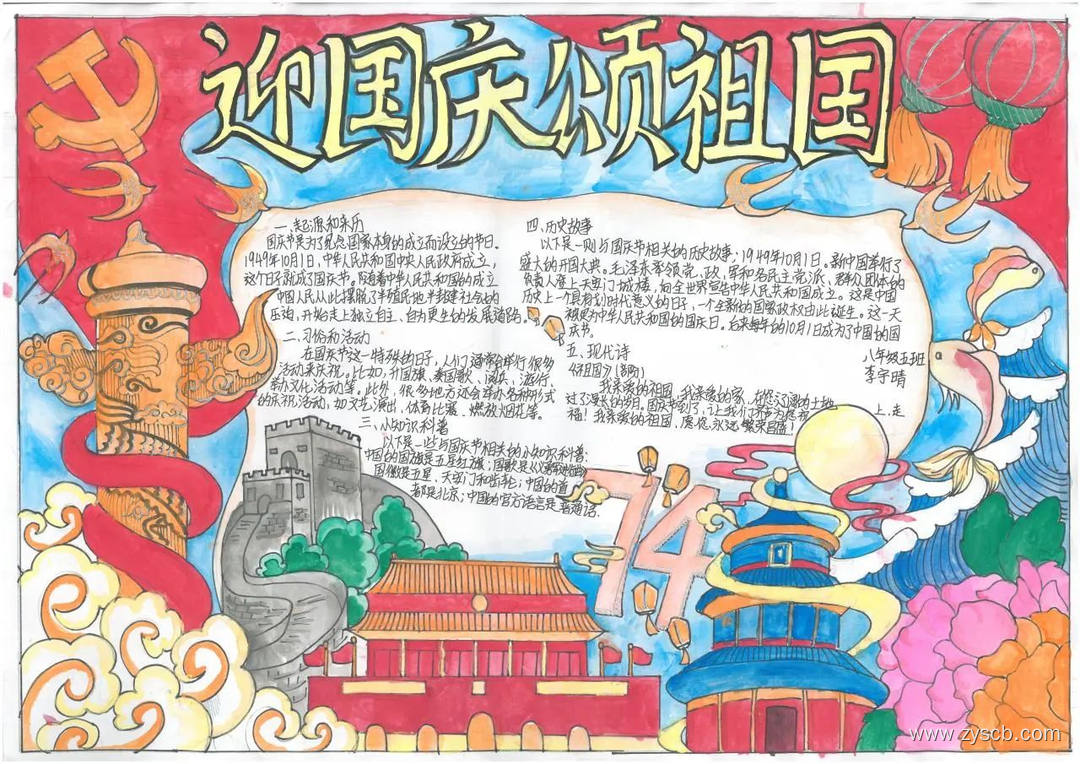 迎国庆颂祖国
一、起源和来历
国庆节是为了纪念国家本身的成立而设立的节日。
1949年10月1日,中华人民共和国中央人民政府成立,
这个日子就成了国庆节。随着中华人民共和国的成立
中国人民从此摆脱了半殖民地半封建社会的
压迫,开始走上独立自主、自力更生的发展道路。
二、习俗和活动
在国庆节这一特殊的日子,人们通常会举行很多
活动来庆祝。比如,升国旗、奏国歌、演兵、游行、
举办文化活动等。此外,很多地方还会举办各种形式
的庆祝活动,如文艺演出、体育比赛、燃放烟花等。
三、小知识科普
以下是一些与国庆节相关的小知识科普:
中国的国旗是五星红旗;国歌是《义勇军进行曲》
国徽是五星、天安门和齿轮;中国的首
都是北京;中国的官方语言是普通话.
四、历史故事
以下是一则与国庆节相关的历史故事:1949年10月1日,新中国举行了
盛大的开国大典。毛泽东率领党、政、军和各民主党派、群众团体的
负责人登上天安门城楼,向全世界宣告中华人民共和国成立。这是中国
历史上一个具有划时代意义的日子,一个全新的国家政权由此诞生。这一天
被定为中华人民共和国的国庆日。后来每年的10月1日成为了中国的国
庆节。
五、现代诗
《祖国》(节略)
我亲爱的祖国,我亲爱的家,在您辽阔的土地上,走
过了漫长的岁月。国庆节到了,让我们齐声为您祝
福!我亲爱的祖国,愿您永远繁荣昌盛!
八年级五班
李宇晴
74
www.zyscb.com